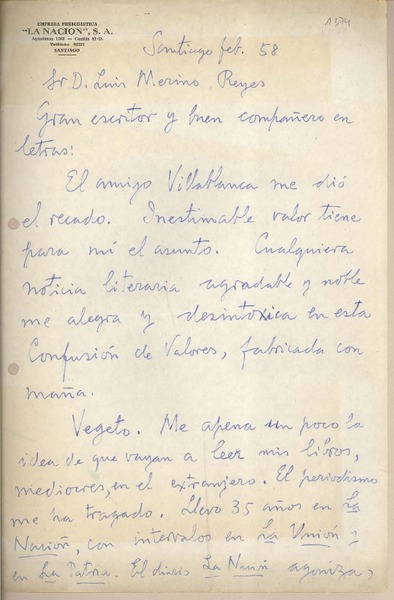 1574
EMPRESA PERIODISTICA
"LA NACION", S. A.
Agustinas 1269 - Casilla 81-D.
Teléfono 82221
SANTIAGO
Santiago feb. 58
Sr D. Luis Merino Reyes
Gran escritor y buen compañero en
letras:
El amigo Villablanca me dió
el recado. Inestimable valor tiene
para mí el asunto. Cualquiera
noticia literaria agradable y noble
me alegra y desintoxica en esta
Confusión de Valores, fabricada con
maña.
Vegeto. Me apena un poco la
idea de que vayan a leer mis libros,
mediocres, en el extranjero. El periodismo
me ha tragado. Llevo 35 años en La
Nación, con intervalos en La Unión y
en La Patria. El diario La Nación agoniza,